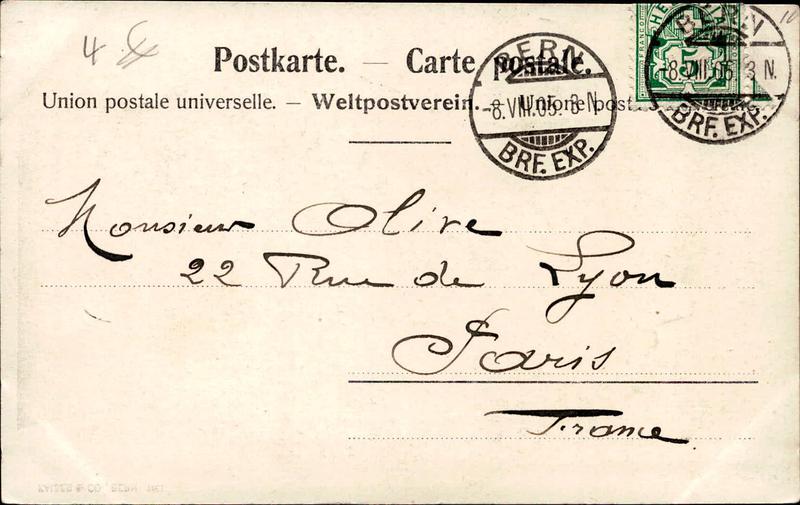 Postkarte. — Carte postale.
Union postale universelle. — Weltpostverein. — Unione post
BERN.
-8.VIII.05. 3 N
BRF. EXP.
BERN
-8.VIII.05 3 N.
BRF. EXP.
FRANCO
HE
5
4
Monsieur Olive
22 Rue de Lyon
Paris
France